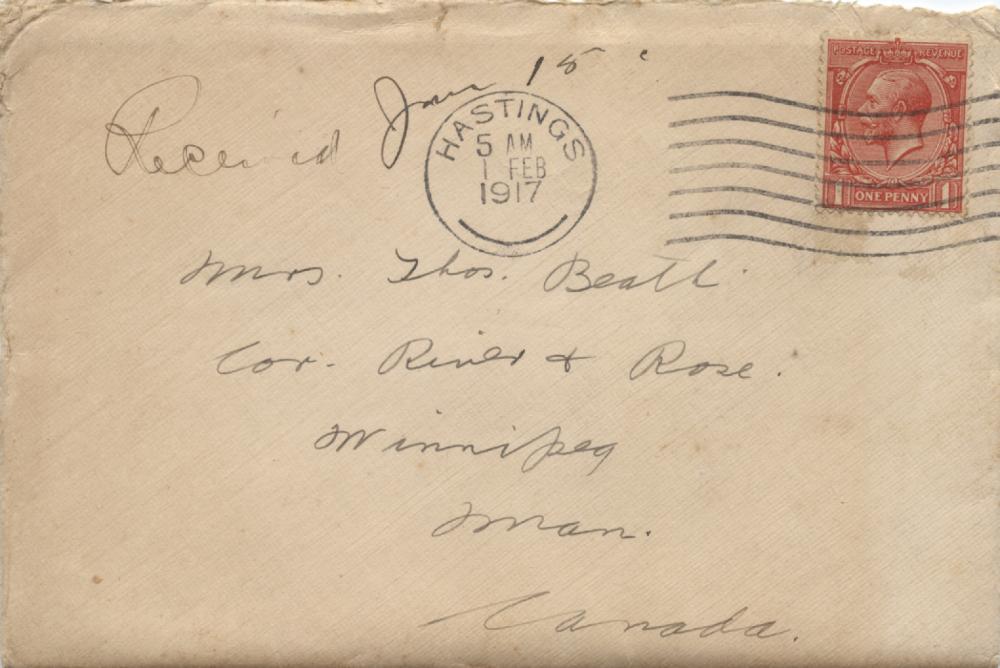 Received Jan 15
POSTAGE REVENUE
HASTINGS
5 AM
1 FEB
1917
1 ONE PENNY 1
Mrs. Thos. Beath
Cor. River & Rose.
Winnipeg
Man.
Canada.